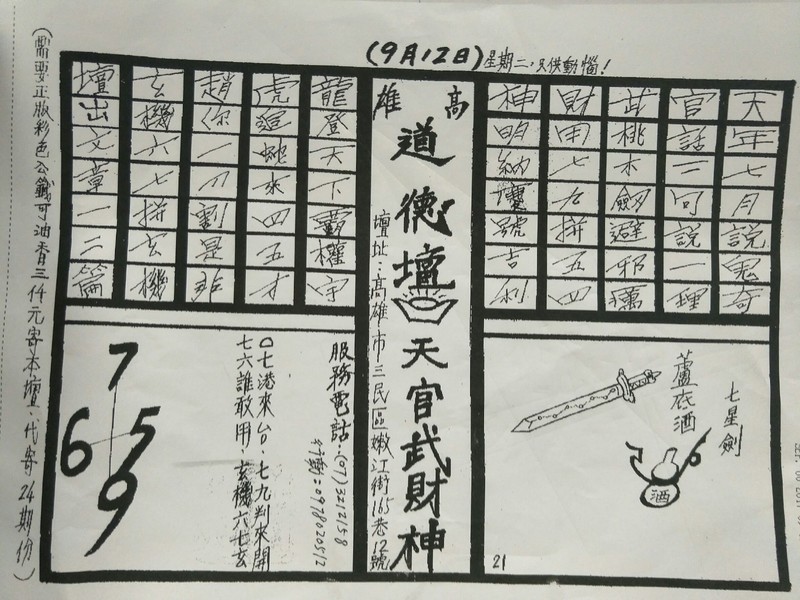 (9月12日)星期二,只供動惱!
天年七月說鬼奇
官話二句說一理
武桃木劍避邪癘
財用七九拼五四
神明納壇號吉利
高雄
道德壇 天官武財神
壇址:高雄市三民區嫩江街165巷12號
龍登天下霸權守
虎追蛇來四五才
趙你一刀劃是非
玄機六七拼玄機
壇出文章一二篇
七星劍
蘆底酒
酒
21
服務電話:(07)3212158
行動:0978020512
口七港來台·七九判來開
七六誰敢用·玄機六七玄
7
6 5
9
(需要正版彩色公籤可油香三仟元寄本壇·代寄24期份)